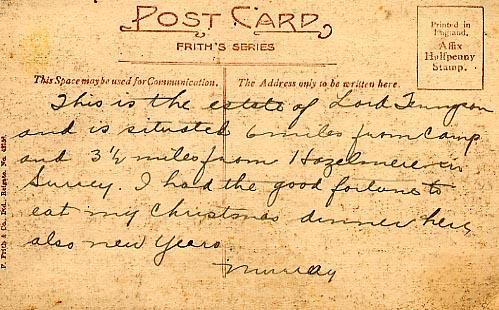 POST CARD
FRITH'S SERIES
Printed in
England.
Affix
Halfpenny
Stamp.
This Space may be used for Communication.
The Address only to be written here.
This is the estate of Lord Tennyson
and is situated 6 miles from Camp
and 3½ miles from Hazelmere in
Surrey. I had the good fortune to
eat my Christmas dinner here,
also new Years
Murray
F. Frith & Co., Ltd., Reigate. No.